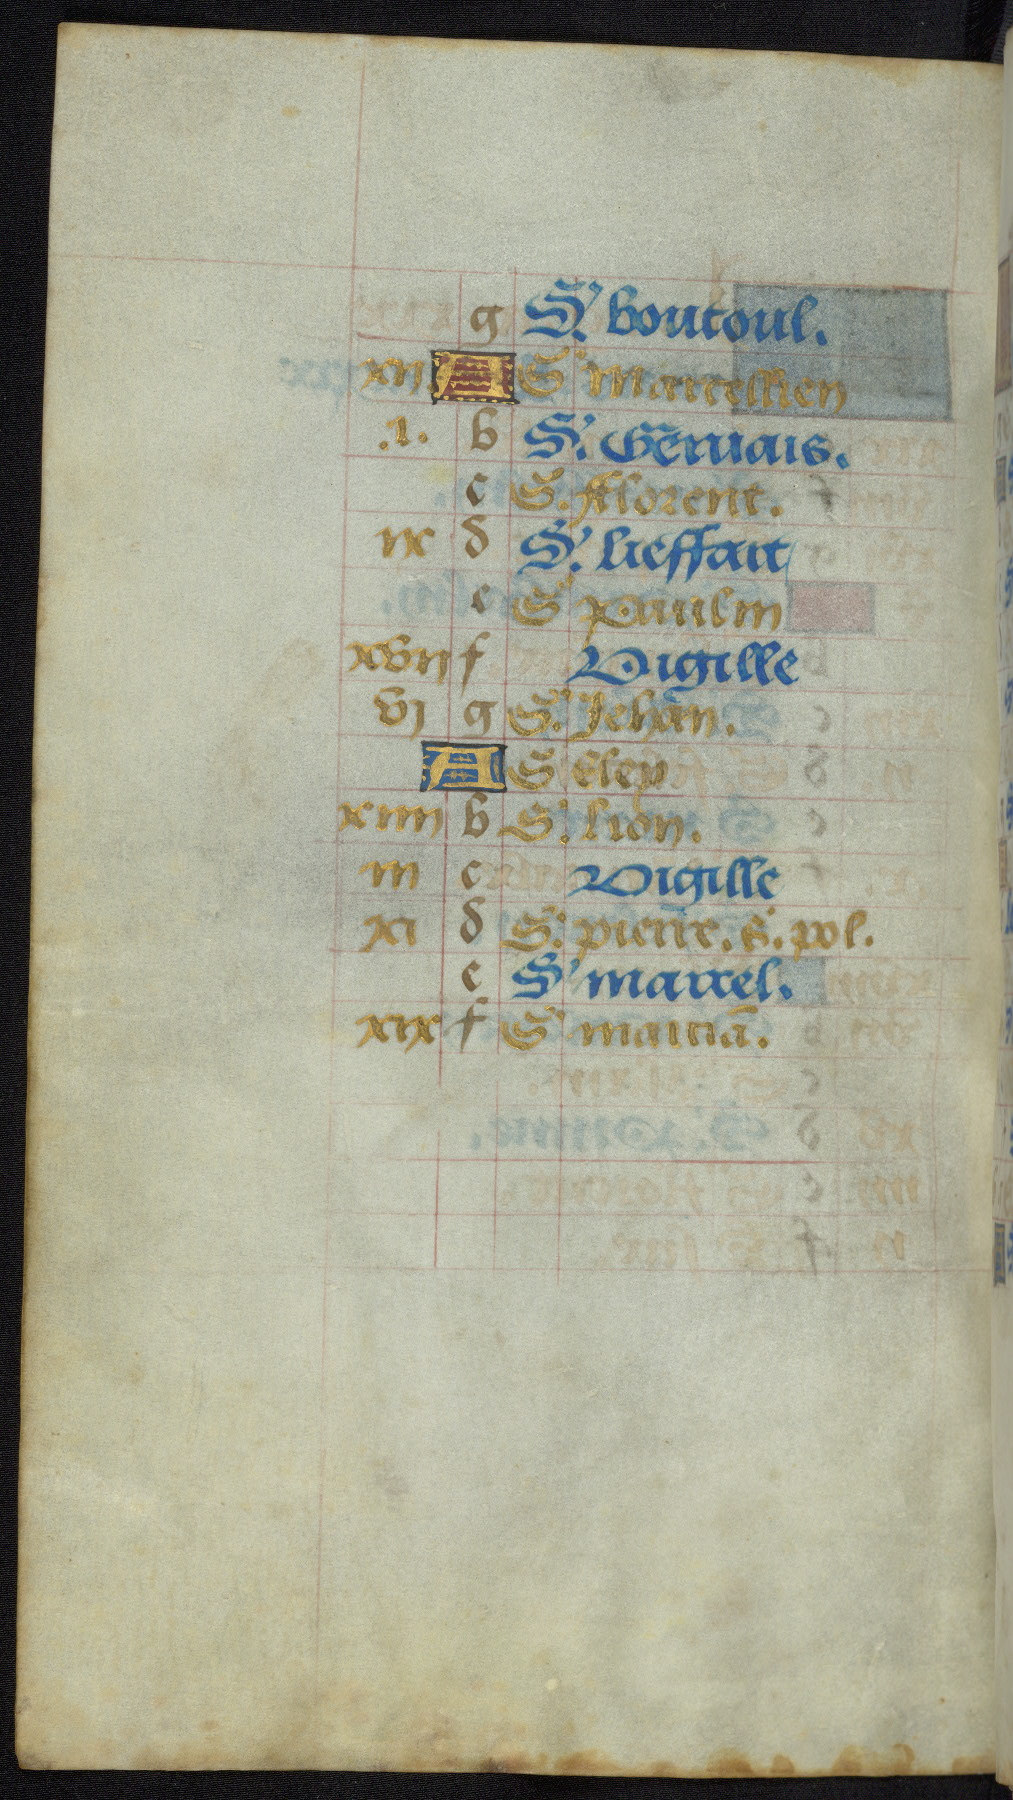 g S. boutoul.
xii. A S marcellien
.i. b S. Geruais.
c S. fflorent.
ix d S. lieffait
e S paulin
xvii f Vigille
vi g S. Jehan.
A S eloy
xiiii b S. lion.
iii c Vigille
xi d S. pierre. s. pol.
e S marcel.
xix f S marciā.